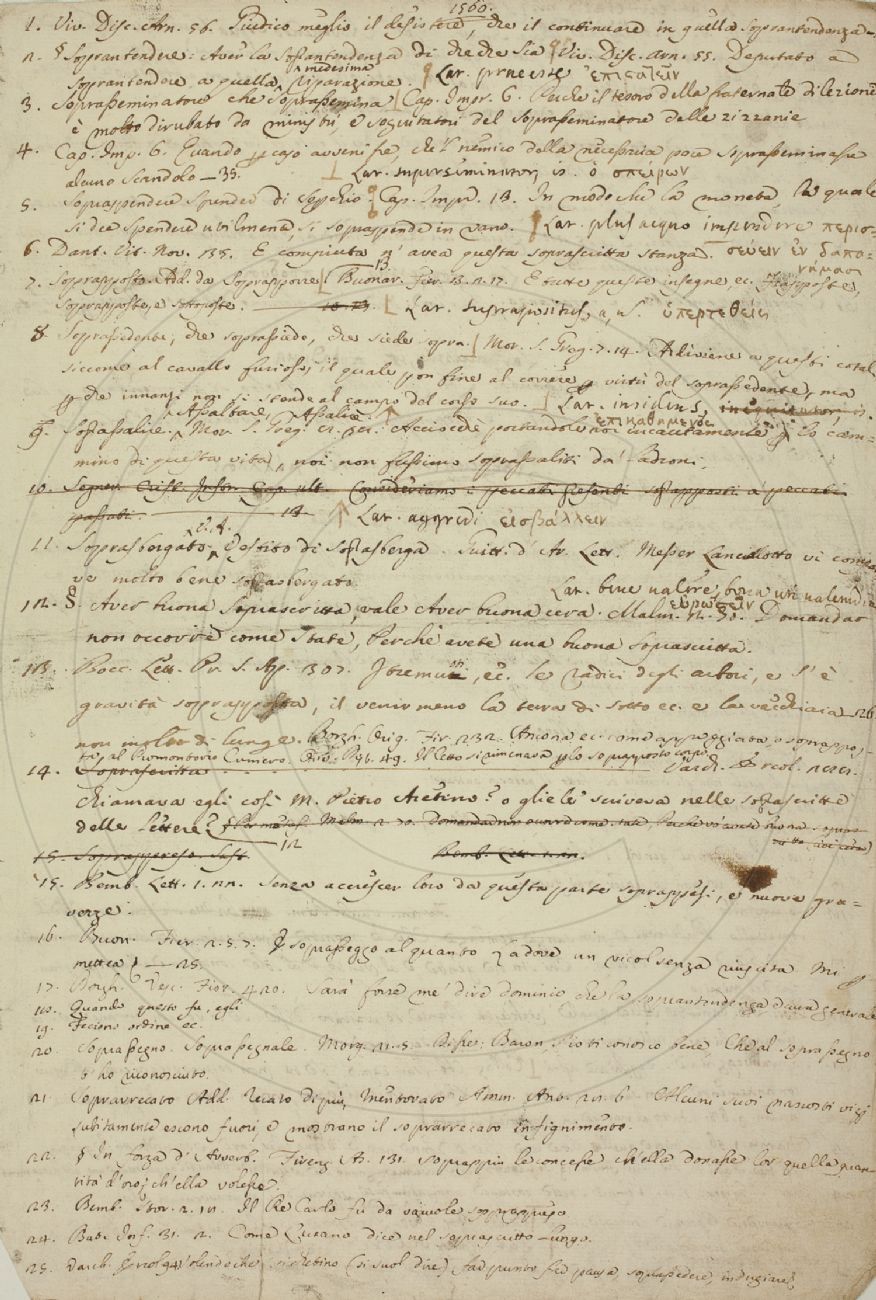 1560.
1. Viv. Disc. Arn. 56. Giudico meglio il desistere, che il continuare in quella soprantendenza.
2. § Soprantendere: Aver la soprantendenza di che che sia Viv. Disc. Arn. 55. Deputato a
soprantendere a quella medesima riparazione. Lat. praeesse ἐπιστατεῖν
3. Soprasseminatore che soprassemina Cap. Impr. 6. Perche il tesoro della fraternale dilezione
è molto dirubato da ministri e seguitatori del soprasseminatore delle zizzanie
4. Cap. Imp. 6. Quando p caso avvenisse, che 'l nemico della necessaria pace soprasseminasse
alcuno scandolo — 35. Lat. superseminator is. ὁ σπείρων
5. Sopraspendere Spender di soperchio Cap. Impr. 13. In modo che la moneta, la quale
si dee spendere utilmente, si soprasspende in vano. Lat. plus aequo impendere περισ-
6. Dant. Vit. Nov. 135. E compiuta n' avea questa soprascritta stanza. σεύειν ἐν δαπα-
νήμασι
7. Soprapposto. Add. da Soprapporre Buonar. Fier. 13. 2. 17. E tutte queste insegne ec. Frapposte,
Soprapposte, e sottoposte. Lat. suprapositus, a, u. ὑπερτεθείς
8. Soprassedente; che soprassiede, che siede sopra. Mor. S. Greg. 7. 14. Adiviene a questi cotal
siccome al cavallo furioso, il quale pon fine al correre p virtù del soprassedente, ma
p che innanzi non si stende al campo del corso suo. Lat. insidens, ἐπικαθήμενος
9. Soprassalire. Assaltare, Assalire Mor. S. Greg. Acciocchè portandolo noi incautamente p lo cam-
mino di questa vita, noi non fussimo soprassaliti da' ladroni.
10. Segner. Crist. Instr. Considerviamo i peccati presenti soprapposti a' peccati
passati. Lat. aggredi εἰσβάλλειν
11. Soprasbergato Vestito di soprasberga. Guitt. d' Ar. Lett. Messer Lancillotto vi comparve
molto bene soprasbergato.
Lat. bene valere
12. § Aver buona Soprascritta, vale Aver buona cera. Malm. Domandar
non occorre come state, Perchè avete una buona soprascritta.
113. Bocc. Lett. Pr. S. Ap. 307. ec. le radici degli arbori, e s' è
gravità soprapposta, il venir meno la terra di sotto ec. e la vecchiaia
non molto di lunge. Borgh. Orig. Fir. 232. Ancona ec. come appoggiata, o soprappos-
ta al Promontorio Cumero. Il letto si p lo soprapposto corpo
14. Soprascritta Varch. Ercol.
chiamava egli così M. Pietro Aretino? o gliele scriveva nelle soprascritte
delle lettere? Domandar non occorre come state, Perchè
15. Soprappreso. Sust. Bemb. Lett. 1.
15. Bemb. Lett. 1. Senza accrescer loro da questa parte soprappesi, e nuove gra-
vezze.
16. Buon. Fier. 2. 5. 7. Soprasseggo alquanto Là dove un vicol senza riuscita Mi
mettea) — 25.
17. Borgh. Vesc. Fior. 420. Sarà forse me' dire dominio, che la soprantendenza, d'un generale
18. Quando questo fu, egli
19. Feciono ordine ec.
20. Soprassegno. Soprassegnale. Morg. 21. 5. Disse: Baron, io ti conosco bene, Che al soprassegno
t' ho riconosciuto.
21. Soprarrecato Add. Recato di più, Mentovato Amm. Ant. Alcuni suoi nascosti vizj
subitamente escono fuori, e mostrano il soprarrecato infignimento.
22. § In forza d' Avverb. Firenz. As. 131. soprappiù le concesse ch'ella donasse lor quella quan-
tità d'oro, ch'ella volesse.
23. Bemb. Stor. 2. Il Re Carlo fu da vaiuole soprappreso
24. But. Inf. 31. 2. Come Lucano dice nel soprascritto luogo.
25. Varch. Ercol. (si suol dire) soprassedere, indugiare,